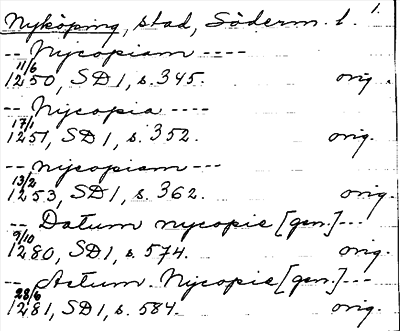 Nyköping, stad, Söderm. l. 1.
-- Nycopiam ----
11/6
1250, SD1, s. 345. orig.
-- Nycopia ----
17/1
1251, SD1, s. 352. orig.
-- nycopiam ---
13/2
1253, SD1, s. 362. orig.
-- Datum nycopie [gen.] ---
9/10
1280, SD1, s. 574. orig.
-- Actum Nycopie [gen.] ---
28/6
1281, SD1, s. 584. orig.